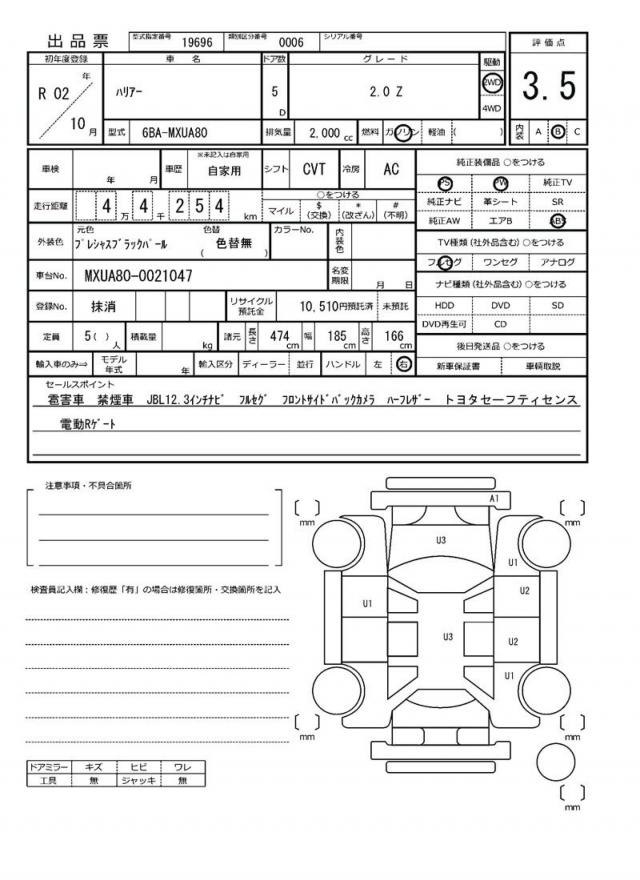 出品票 型式指定番号 19696 類別区分番号 0006 シリアル番号
初年度登録 車名 ドア数 グレード 駆動 評価点
R 02 年 ハリアー 5 D 2.0 Z 2WD 3.5
10 月 4WD
型式 6BA-MXUA80 排気量 2,000 cc 燃料 ガソリン 軽油 ( ) 内装 A B C
車検 年 月 車歴 ※未記入は自家用 自家用 シフト CVT 冷房 AC 純正装備品 ○をつける
PS PW 純正TV
走行距離 4 万 4 千 2 5 4 km ○をつける
マイル $ (交換) * (改ざん) # (不明) 純正ナビ 革シート SR
純正AW エアB ABS
外装色 元色 プレシャスブラックパール 色替 ( 色替無 ) カラーNo. 内装色 TV種類 (社外品含む) ○をつける
フルセグ ワンセグ アナログ
車台No. MXUA80-0021047 名変期限 月 日 ナビ種類 (社外品含む) ○をつける
登録No. 抹消 リサイクル預託金 10,510円預託済 未預託 HDD DVD SD
DVD再生可 CD
定員 5( ) 人 積載量 kg 諸元 長さ 474 cm 幅 185 cm 高さ 166 cm 後日発送品 ○をつける
輸入車のみ⇒ モデル年式 年 輸入区分 ディーラー 並行 ハンドル 左 右 新車保証書 車輌取説
セールスポイント
雹害車 禁煙車 JBL12.3インチナビ フルセグ フロントサイドバックカメラ ハーフレザー トヨタセーフティセンス
電動Rゲート
注意事項・不具合箇所
検査員記入欄：修復歴「有」の場合は修復箇所・交換箇所を記入
A1
mm
mm
U3
U1
U1
U2
U3
U2
U1
mm
mm
mm
ドアミラー キズ ヒビ ワレ
工具 無 ジャッキ 無